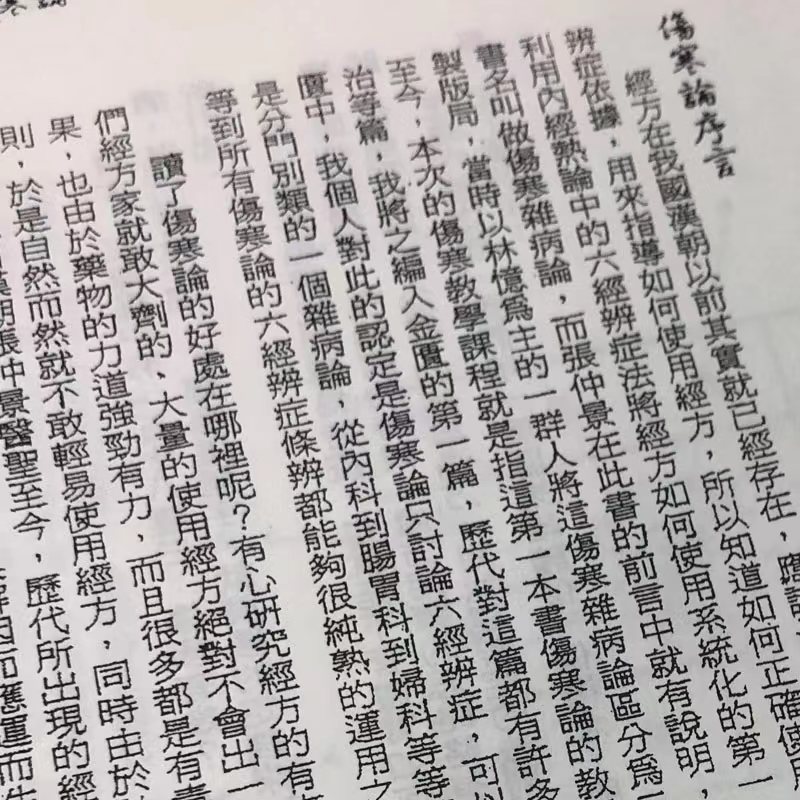 傷寒論序言
經方在我國漢朝以前其實就已經存在，應
辨症依據，用來指導如何使用經方，所以知道如何正確使用
利用內經熱論中的六經辨症法將經方如何使用系統化的第一
書名叫做傷寒雜病論，而張仲景在此書的前言中就有說明，
製版局，當時以林憶爲主的一群人將這傷寒雜病論區分爲
至今，本次的傷寒教學課程就是指這第一本書傷寒論的教
治等篇，我將之編入金匱的第一篇，歷代對這篇都有許多
匱中，我個人對此的認定是傷寒論只討論六經辨症，可以
是分門別類的一個雜病論，從內科到腸胃科到婦科等等
等到所有傷寒論的六經辨症條辨都能夠很純熟的運用之
讀了傷寒論的好處在哪裡呢？有心研究經方的有
們經方家就敢大劑的、大量的使用經方絕對不會出一
果，也由於藥物的力道強勁有力，而且很多都是有
則，於是自然而然就不敢輕易使用經方，同時由於
漢朝張仲景醫聖至今，歷代所出現的經
因而應運而